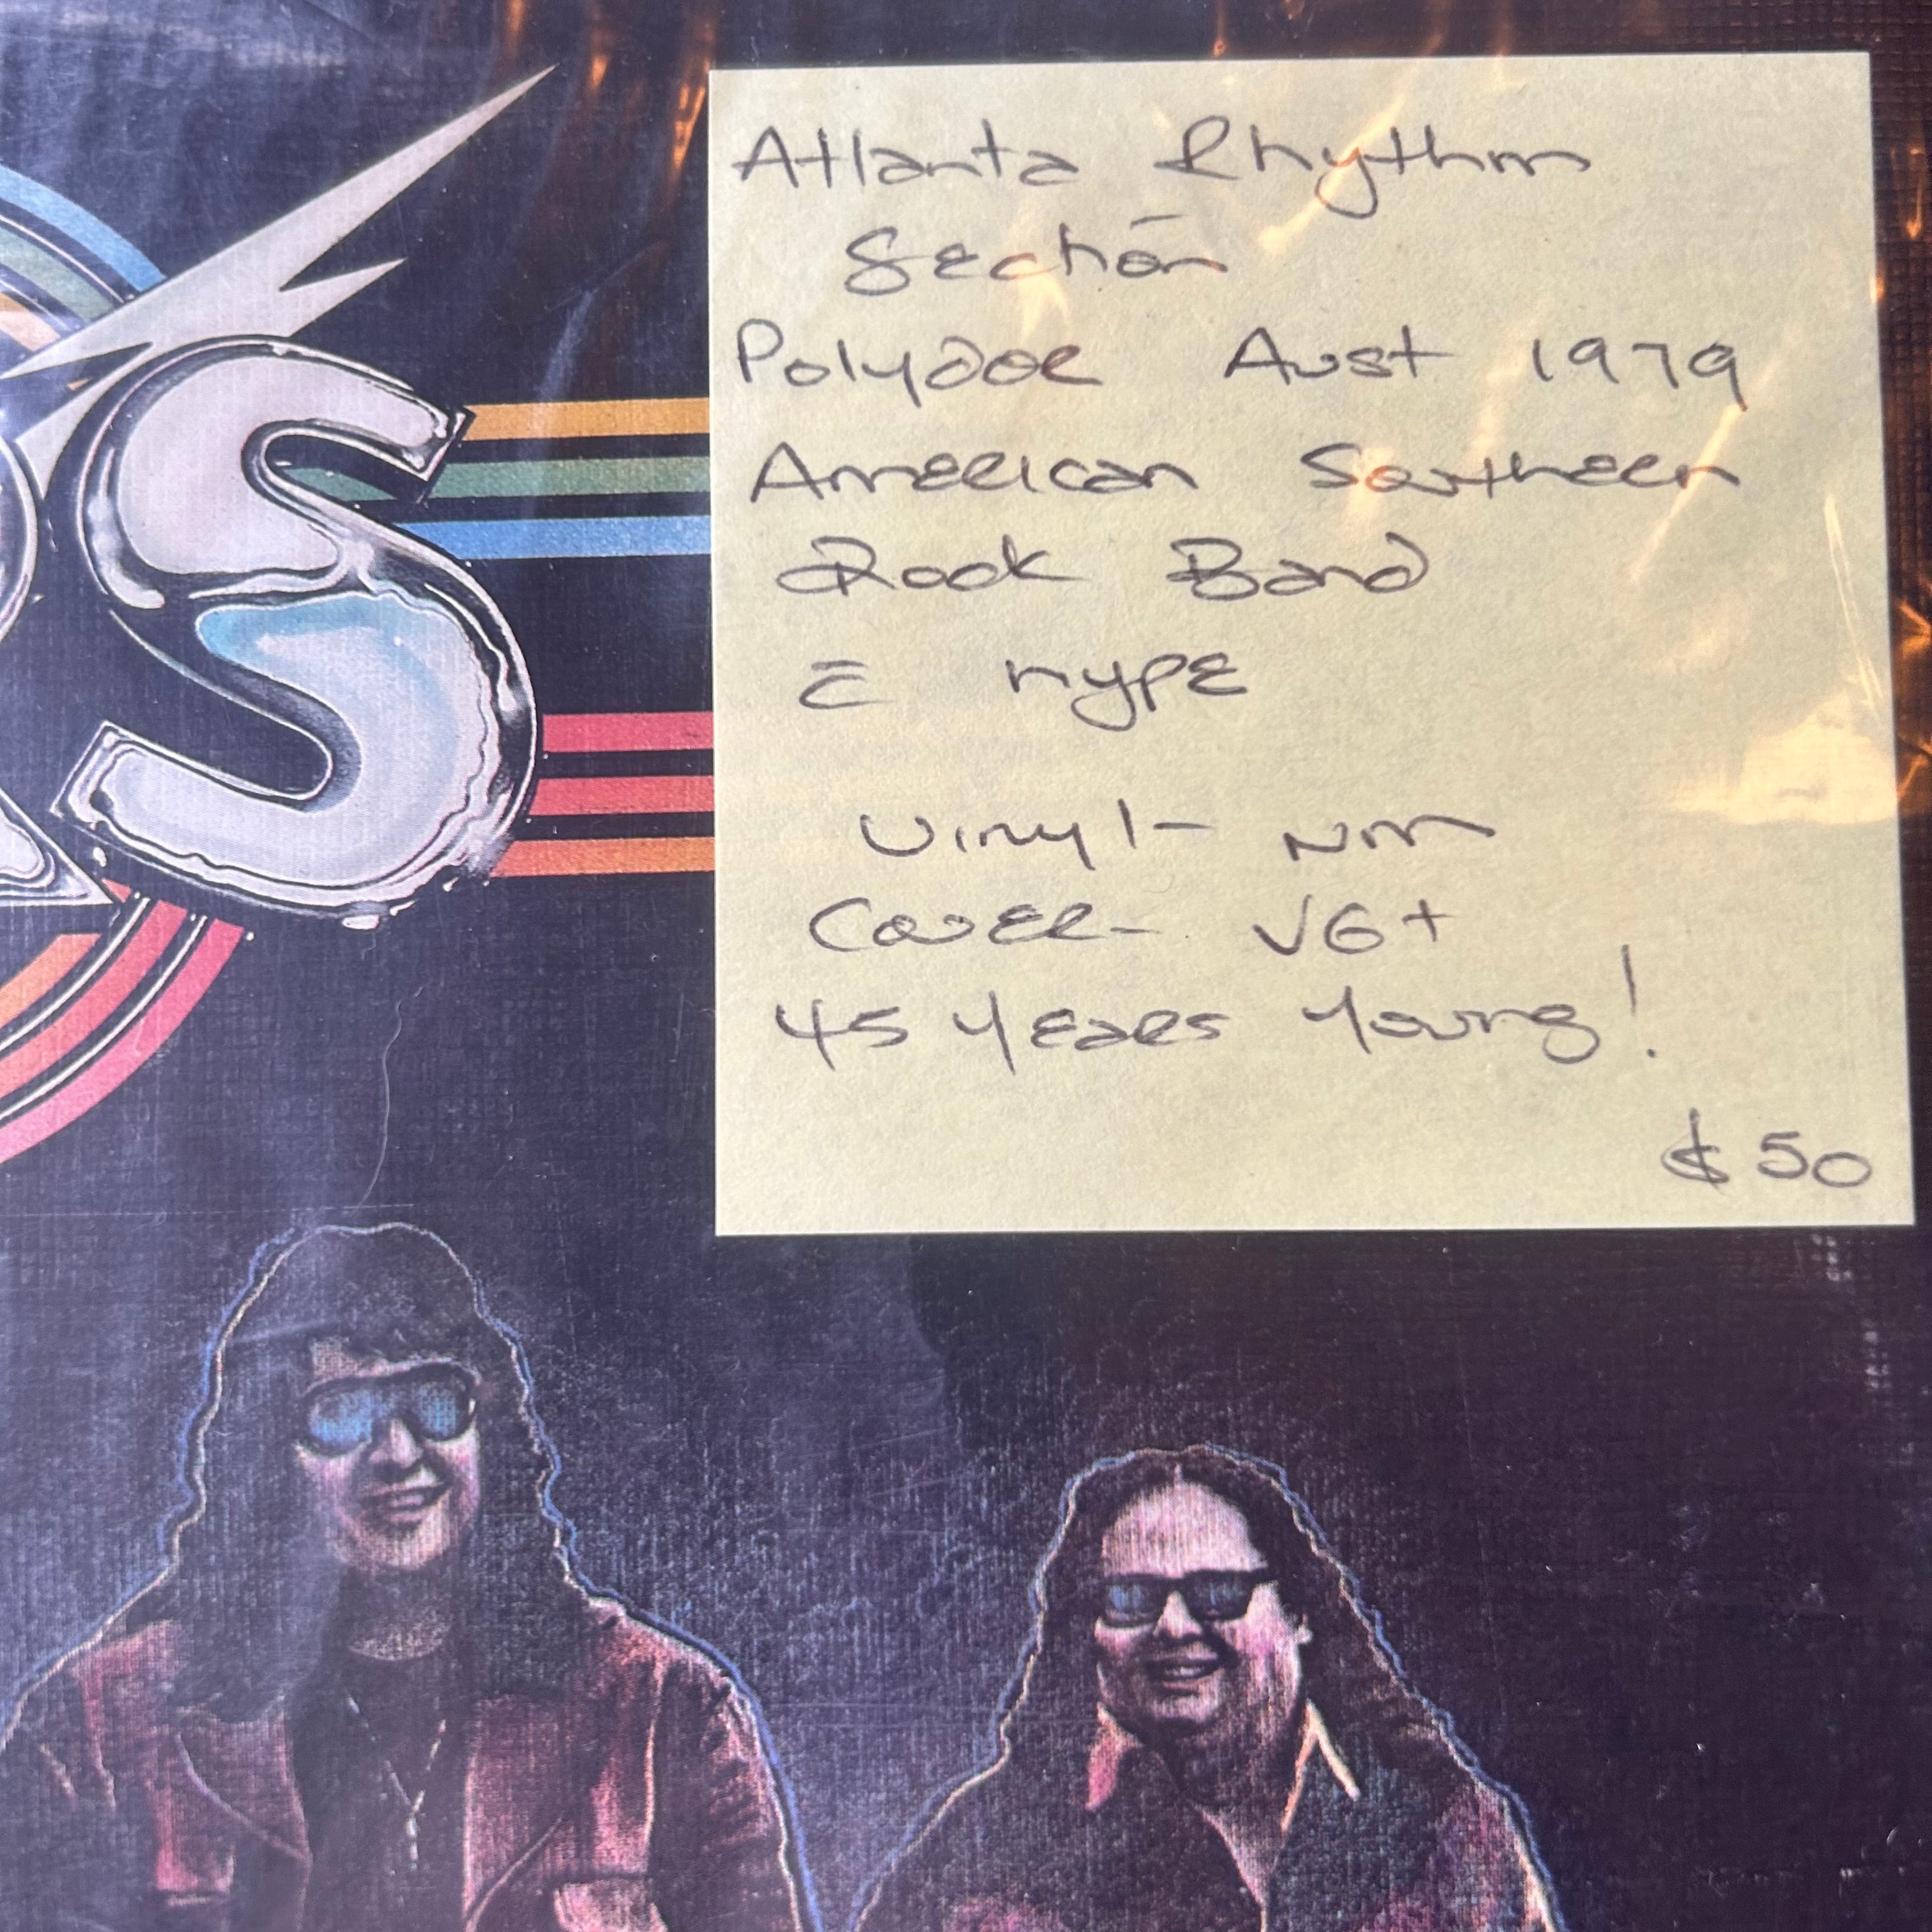 S
Atlanta Rhythm
Section
Polydor Aust 1979
American Southern
Rock Band
c̄ hype
Vinyl- NM
Cover- VG+
45 Years Young!
$50